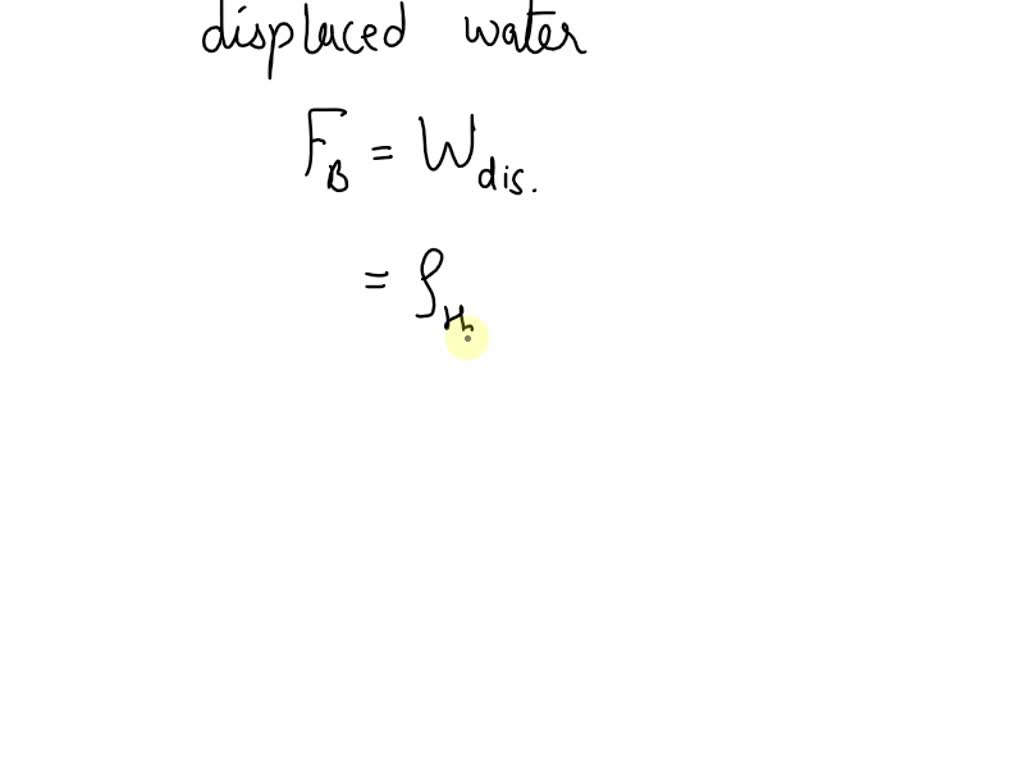 displaced water
F_B = W_dis.
= ρ_H